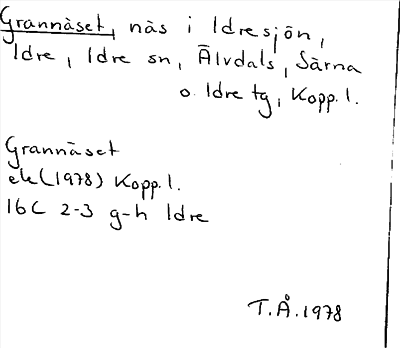 Grannäset, näs i Idresjön,
Idre, Idre sn, Älvdals, Särna
o. Idre tg, Kopp. l.
Grannäset
ek (1978) Kopp. l.
16C 2-3 g-h Idre
T.Å. 1978